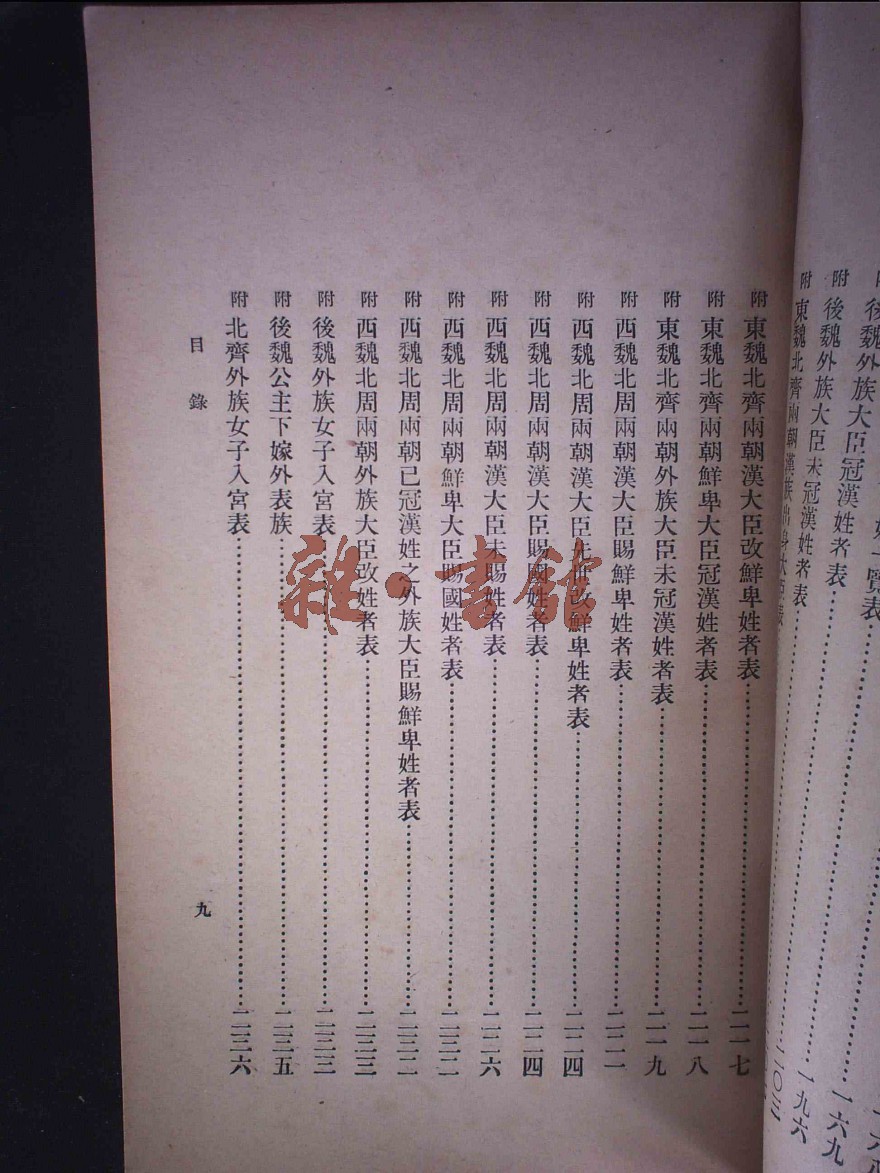 附 後魏外族大臣冠漢姓者表……一六九
附 後魏外族大臣未冠漢姓者表……一九六
附 東魏北齊兩朝漢族出身大臣表……二〇三
附 東魏北齊兩朝漢大臣改鮮卑姓者表……二一七
附 東魏北齊兩朝鮮卑大臣冠漢姓者表……二一八
附 東魏北齊兩朝外族大臣未冠漢姓者表……二一九
附 西魏北周兩朝漢大臣賜鮮卑姓者表……二二一
附 西魏北周兩朝漢大臣先世改鮮卑姓者表……二二四
附 西魏北周兩朝漢大臣賜國姓者表……二二四
附 西魏北周兩朝漢大臣未賜姓者表……二二六
附 西魏北周兩朝鮮卑大臣賜國姓者表……二三二
附 西魏北周兩朝已冠漢姓之外族大臣賜鮮卑姓者表……二三二
附 西魏北周兩朝外族大臣改姓者表……二三三
附 後魏外族女子入宮表……二三三
附 後魏公主下嫁外表族……二三五
附 北齊外族女子入宮表……二三六
目錄 九
雜·書館